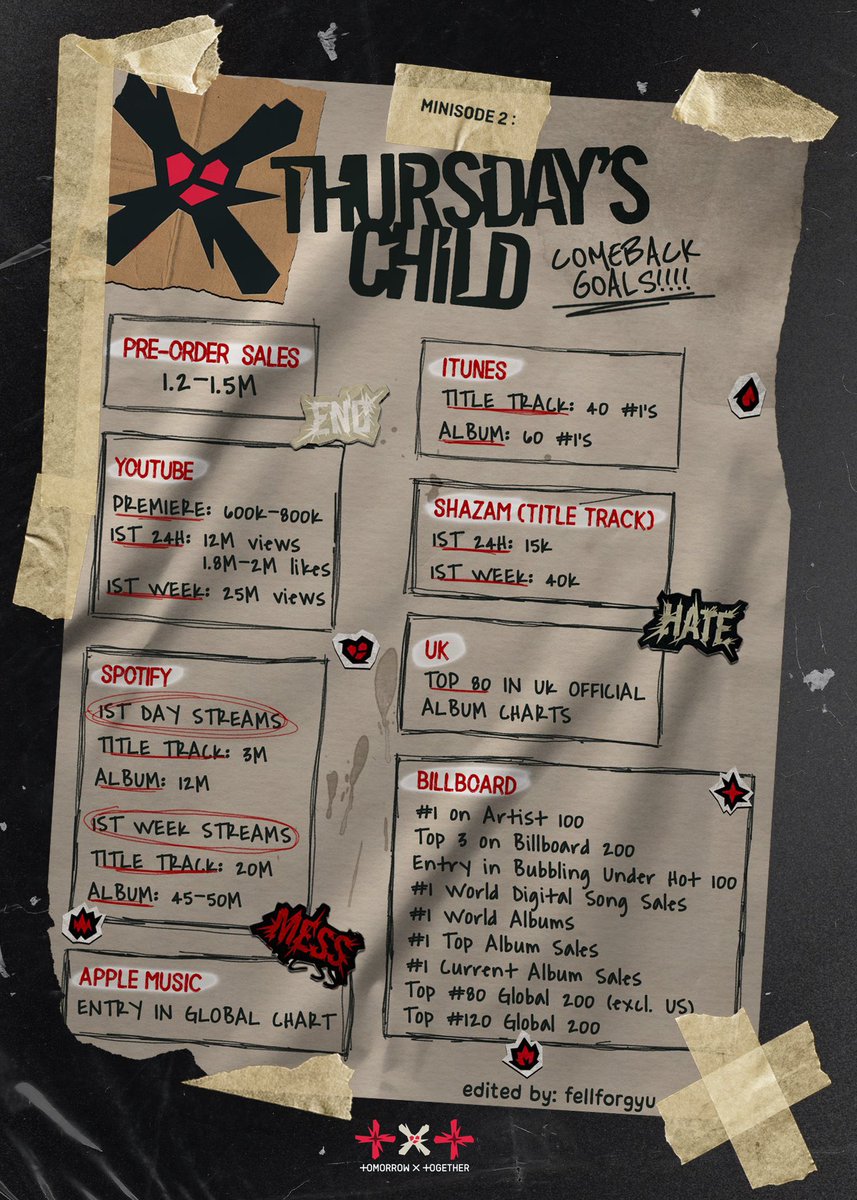 MINISODE 2:
THURSDAY'S
CHILD
COMEBACK
GOALS!!!!
PRE-ORDER SALES
1.2-1.5M
END
YOUTUBE
PREMIERE: 600K-800K
1ST 24H: 12M views
1.8M-2M likes
1ST WEEK: 25M views
SPOTIFY
1ST DAY STREAMS
TITLE TRACK: 3M
ALBUM: 12M
1ST WEEK STREAMS
TITLE TRACK: 20M
ALBUM: 45-50M
MESS
APPLE MUSIC
ENTRY IN GLOBAL CHART
ITUNES
TITLE TRACK: 40 #1'S
ALBUM: 60 #1'S
SHAZAM (TITLE TRACK)
1ST 24H: 15K
1ST WEEK: 40K
HATE
UK
TOP 80 IN UK OFFICIAL
ALBUM CHARTS
BILLBOARD
#1 on Artist 100
Top 3 on Billboard 200
Entry in Bubbling Under Hot 100
#1 World Digital Song Sales
#1 World Albums
#1 Top Album Sales
#1 Current Album Sales
Top #80 Global 200 (excl. US)
Top #120 Global 200
edited by: fellforgyu
TOMORROW X TOGETHER